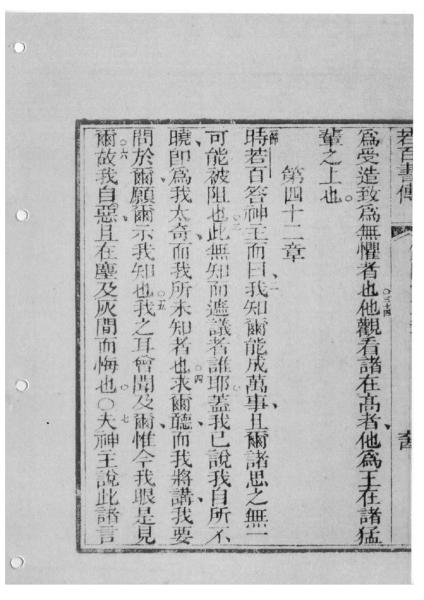 若百書傳
為受造致為無懼者也○三十四他觀看諸在高者他為王在諸猛
輩之上也
第四十二章
節一時若百答神主而曰二我知爾能成萬事且爾諸思之無一
可能被阻也三此無知而遮議者誰耶蓋我已說我自所不
曉即為我太奇而我所未知者也○四求爾聽而我將講我要
問於爾願爾示我知也○五我之耳曾聞及爾惟今我眼是見
爾○六故我自惡且在塵及灰間而悔也○○七夫神主說此諸言